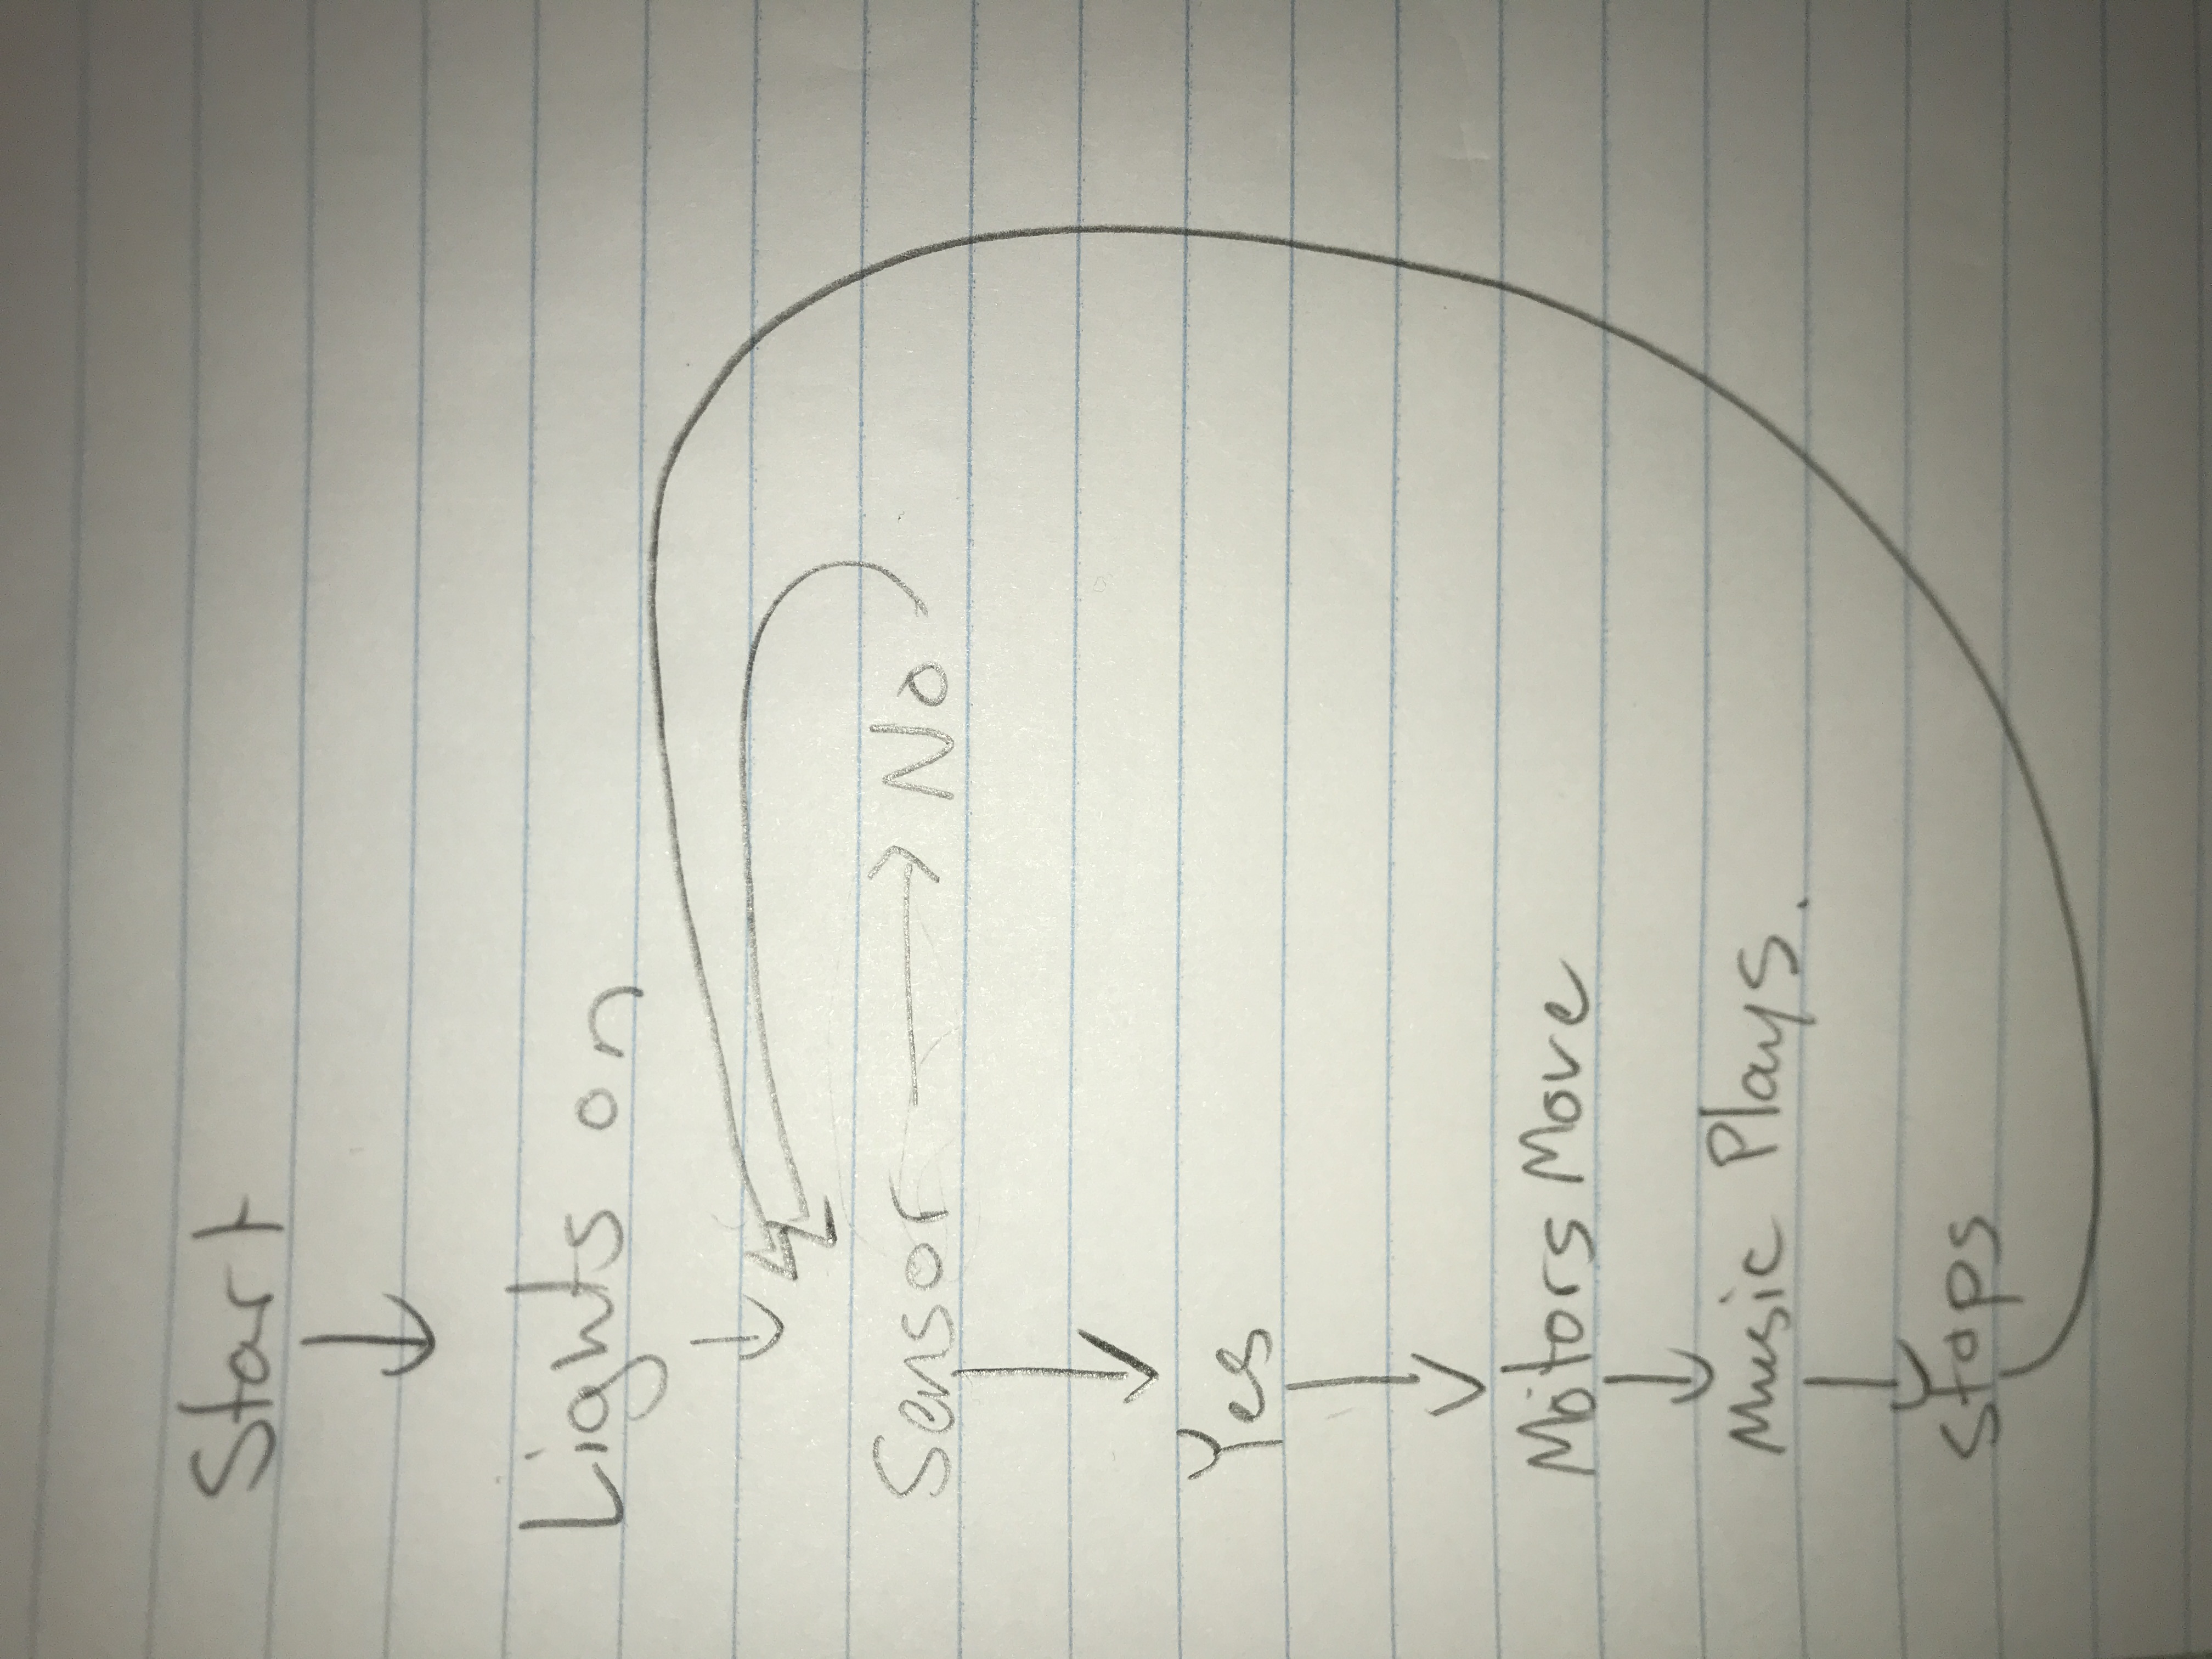 Start
Lights on
Sensor No
Yes
Motors Move
Music Plays.
Stops